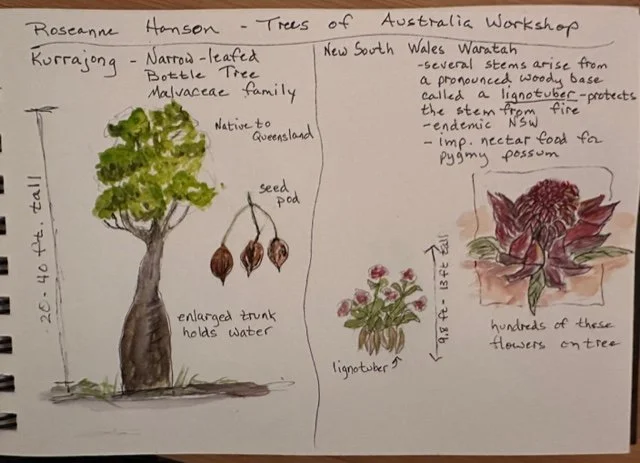 Roseanne Hanson - Trees of Australia Workshop
Kurrajong - Narrow-leafed
Bottle Tree
Malvaceae family
Native to
Queensland
seed
pod
20-40 ft. tall
enlarged trunk
holds water
New South Wales Waratah
- several stems arise from
a pronounced woody base
called a lignotuber - protects
the stem from fire
- endemic NSW
- imp. nectar food for
pygmy possum
9.8 ft - 13 ft tall
lignotuber
hundreds of these
flowers on tree